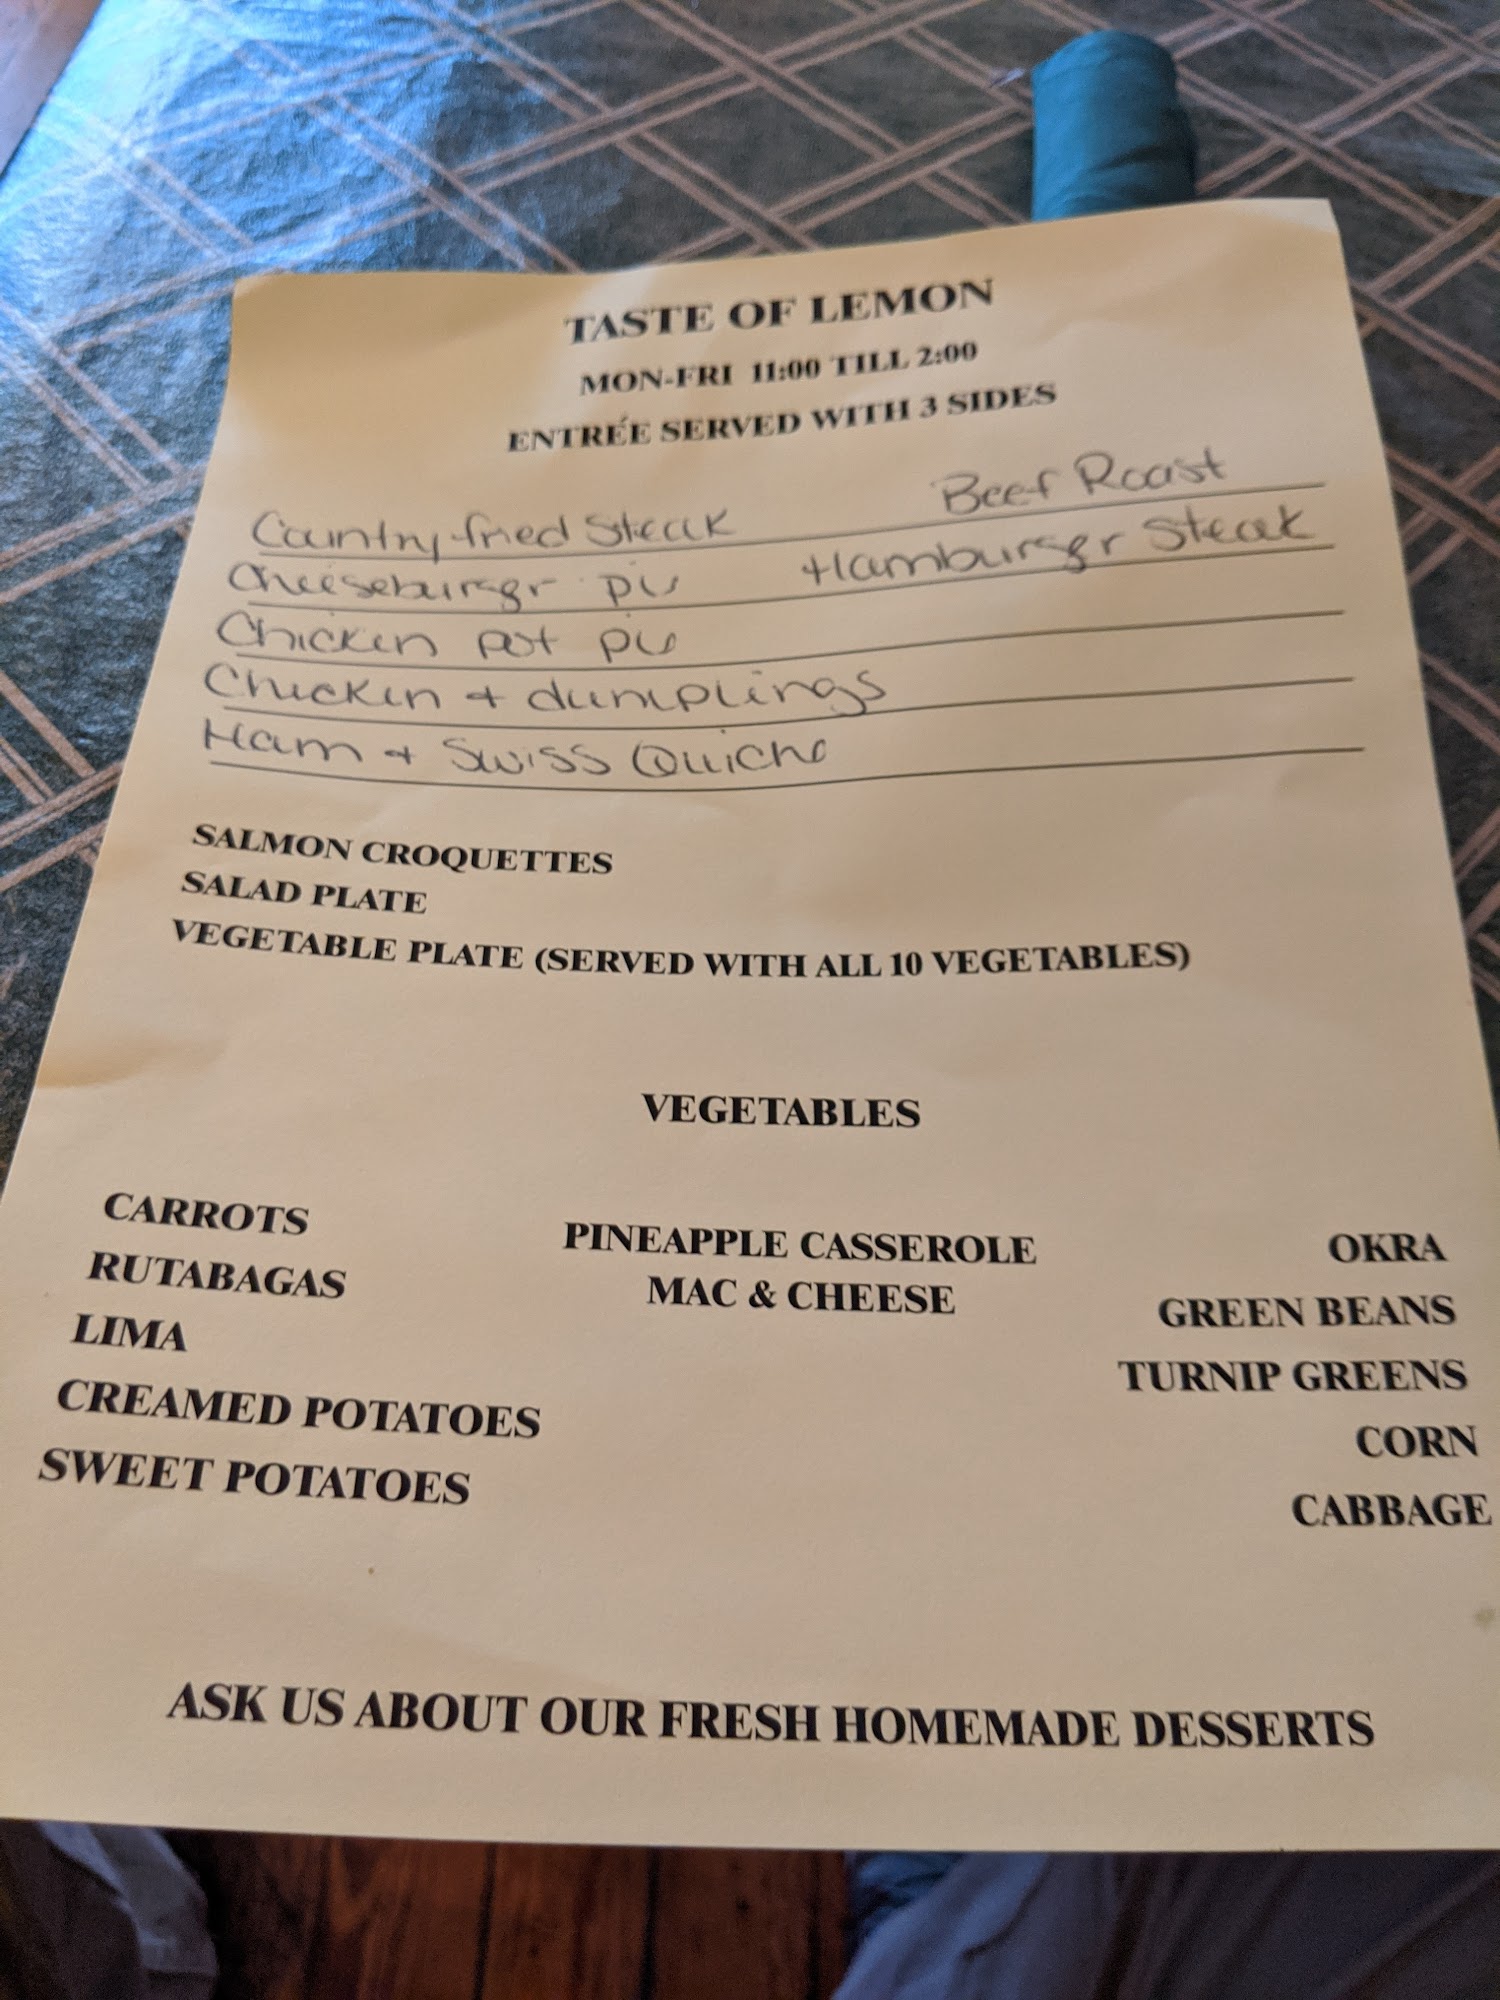 TASTE OF LEMON
MON-FRI 11:00 TILL 2:00
ENTRÉE SERVED WITH 3 SIDES
Country fried Steak Beef Roast
Cheeseburger pie Hamburger Steak
Chicken pot pie
Chicken + dumplings
Ham + Swiss Quiche
SALMON CROQUETTES
SALAD PLATE
VEGETABLE PLATE (SERVED WITH ALL 10 VEGETABLES)
VEGETABLES
CARROTS PINEAPPLE CASSEROLE OKRA
RUTABAGAS MAC & CHEESE GREEN BEANS
LIMA TURNIP GREENS
CREAMED POTATOES CORN
SWEET POTATOES CABBAGE
ASK US ABOUT OUR FRESH HOMEMADE DESSERTS